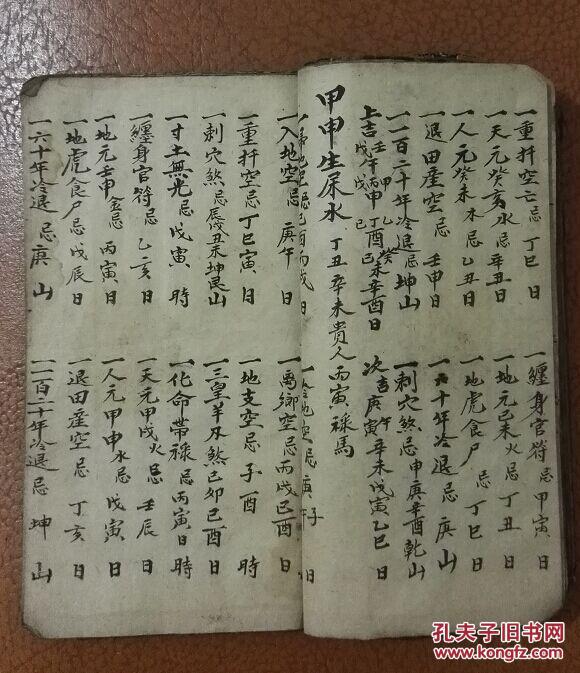 一重扦空亡忌丁巳日
一纏身官符忌甲寅日
一天元癸亥水忌辛丑日
一地元己未火忌丁丑日
一人元癸未木忌乙丑日
一地虎食尸忌丁巳日
一退田産空忌壬申日
一六十年冷退忌庚山
一一百二十年冷退忌坤山
一刺穴煞忌申庚辛酉乾山
上吉
次吉
甲申生屎水
丁丑辛未貴人丙寅祿馬
一入地空忌庚午日
一离鄉空忌丙戌己酉日
一重扦空忌丁巳寅日
一地支空忌子酉時
一刺穴煞忌辰戌丑未坤艮山
一三皇羊刃煞忌己卯己酉日
一寸土無光忌戊寅時
一化命帶祿忌丙寅日時
一纏身官符忌乙亥日
一天元甲戌火忌壬辰日
一地元壬申金忌丙寅日
一人元甲申水忌戊寅日
一地虎食尸忌戊辰日
一退田産空忌丁亥日
一六十年冷退忌庚山
一一百二十年冷退忌坤山
孔夫子旧书网
www.kongfz.com